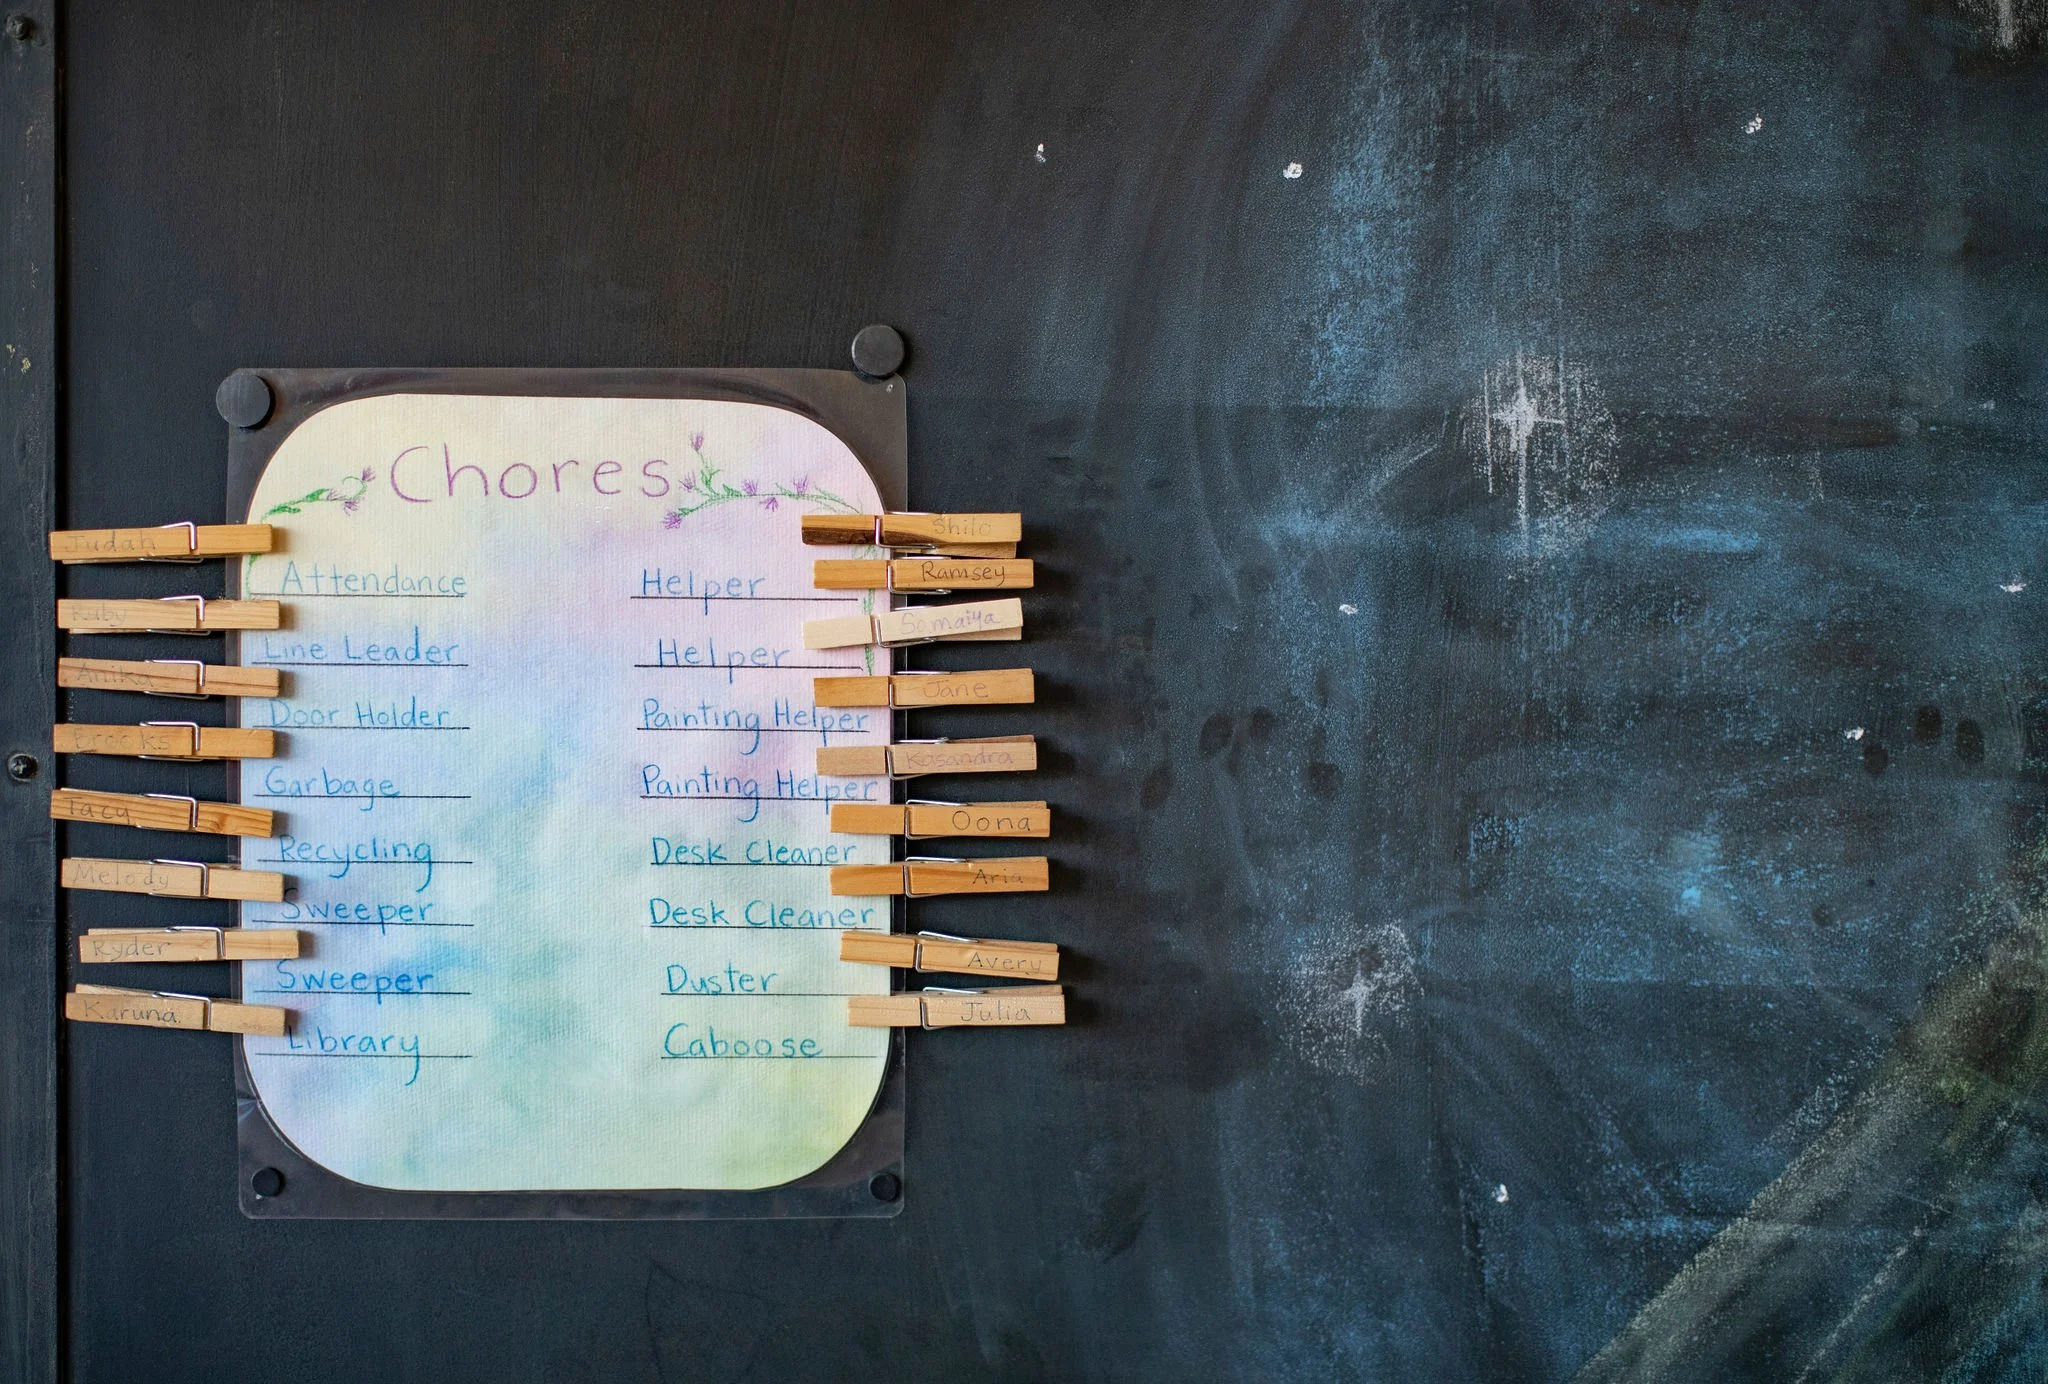 Chores
Judah
Attendance
Ruby
Line Leader
Anika
Door Holder
Brooks
Garbage
Tacy
Recycling
Melody
Sweeper
Ryder
Sweeper
Karuna
Library
Shilo
Ramsey
Helper
Somaiya
Helper
Jane
Painting Helper
Kasandra
Painting Helper
Oona
Desk Cleaner
Aria
Desk Cleaner
Avery
Duster
Julia
Caboose